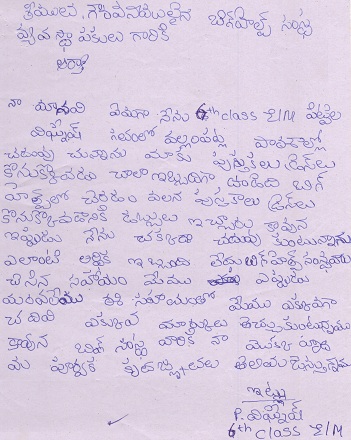 శ్రీయుత, గౌరవనీయులైన బిగ్‌హెల్ప్ సంస్థ
వ్యవస్థాపకులు గారికి
నా మనవి ఏమిగా నేను 6th class E/M
విఘ్నేష్ పాఠశాలలో
చదువు చున్నాను మాకు పుస్తకాలు డ్రెస్‌లు
కొనుక్కోవడం చాలా ఇబ్బందిగా ఉండేది బిగ్
చేరడం వలన పుస్తకాలు డ్రెస్‌లు
కొనుక్కోవడానికి డబ్బులు ఇచ్చారు కావున
ఇప్పుడు నేను చక్కగా చదువు కుంటున్నాను
ఎలాంటి ఆర్థిక ఇబ్బంది లేదు బిగ్‌హెల్ప్ సంస్థవారు
చేసిన సహాయం మేము ఎప్పుడు
మరవలేము ఈ సహాయంతో మేము ఎక్కువగా
చదివి ఎక్కువ మార్కులు తెచ్చుకుంటున్నాము
కావున బిగ్ సంస్థ వారికి నా
పూర్వక కృతజ్ఞతలు తెలియ చేస్తున్నాను
ఇట్లు
P. విఘ్నేష్
6th class E/M